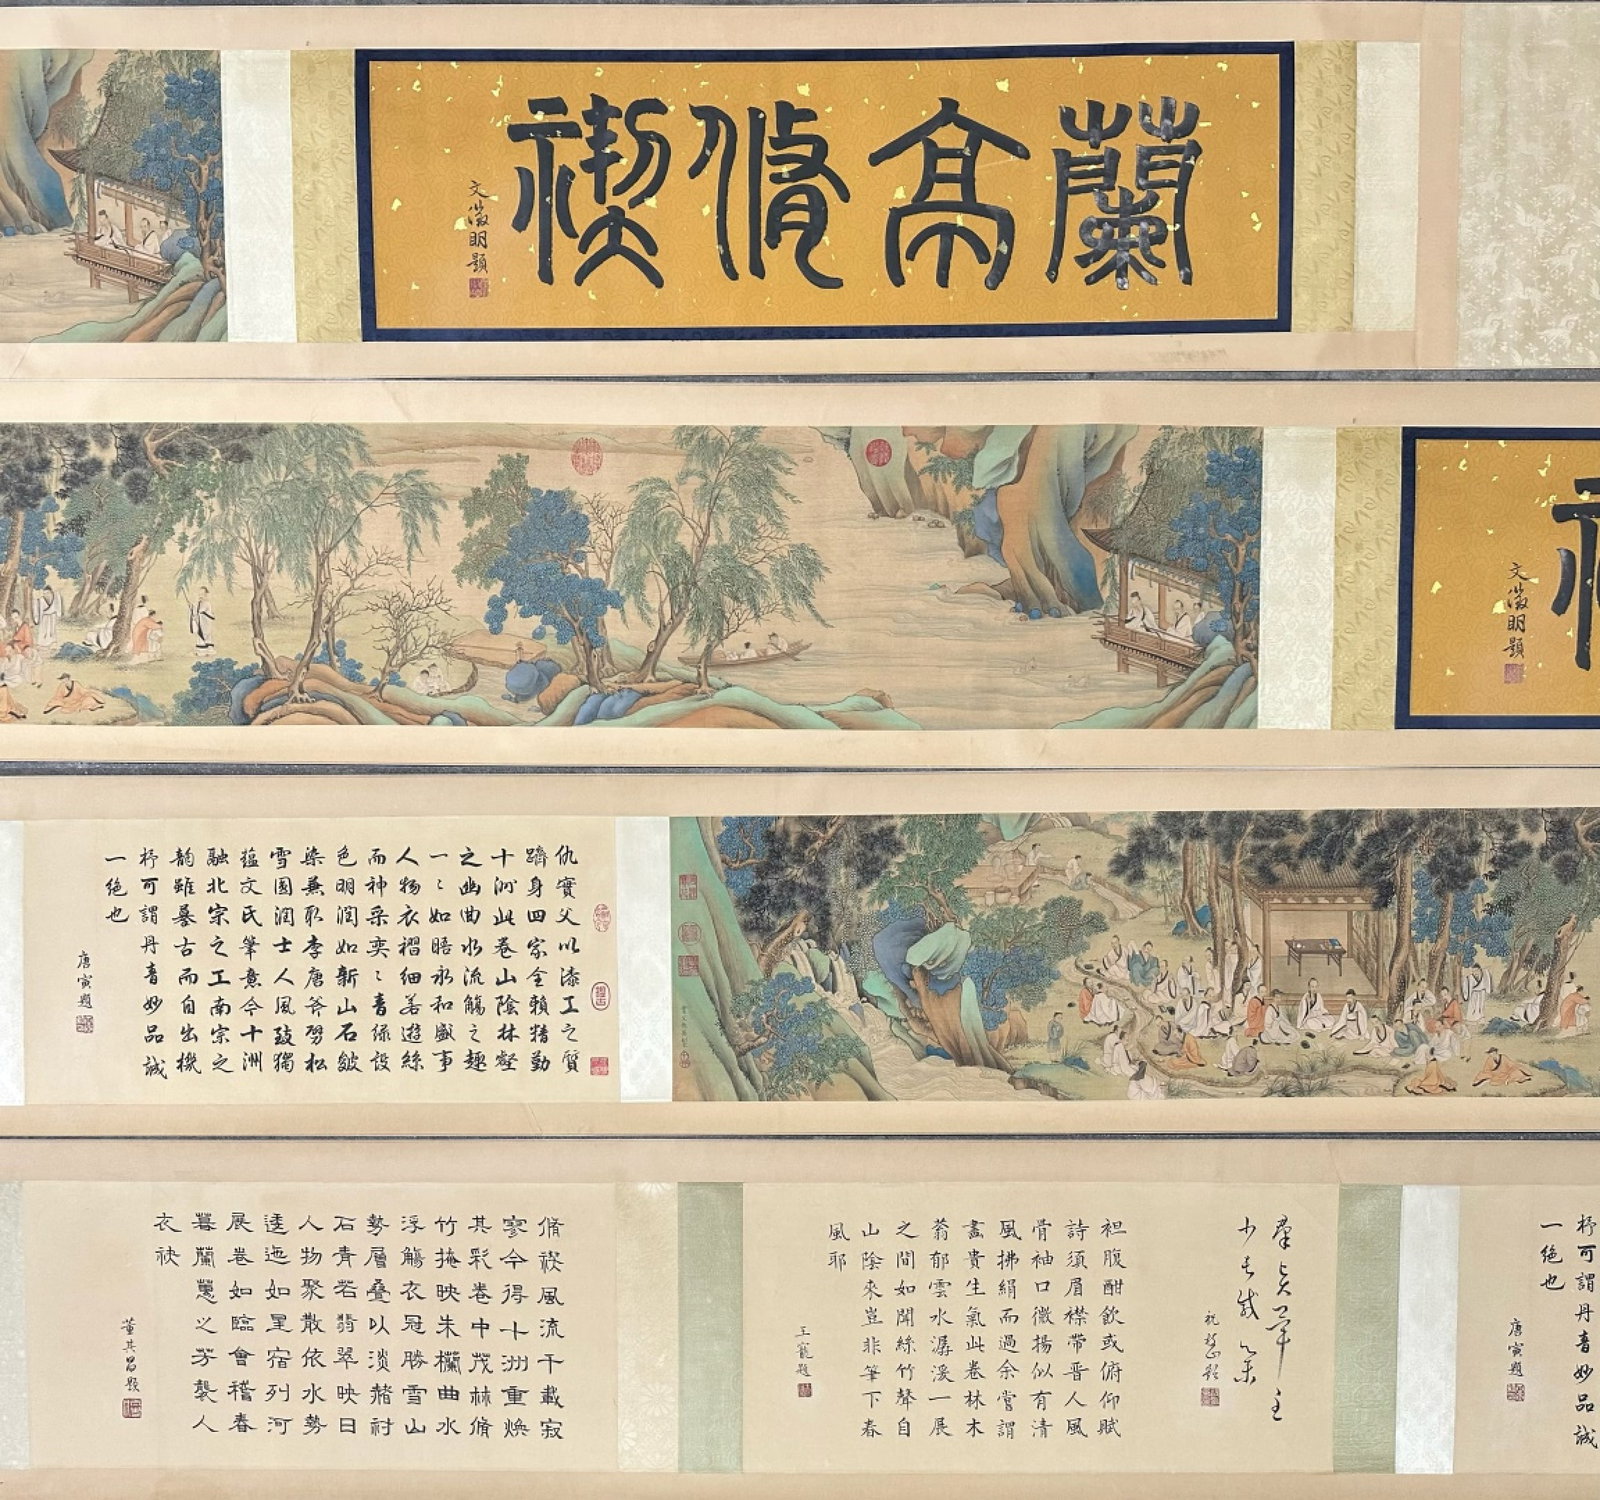 蘭亭脩禊
文徵明題
文徵明題
仇實父以漆工之質
躋身四家全賴精勤
十洲此卷山陰林壑
之幽曲水流觴之趣
一一如晤永和盛事
人物衣褶細若遊絲
而神采奕奕青綠設
色明潤如新山石皴
染兼取李唐斧劈松
雪圓潤士人風致獨
蘊文氏筆意今十洲
融北宗之工南宗之
韵雖摹古而自出機
杼可謂丹青妙品誠
一絕也
唐寅題
杼可謂丹青妙品誠
一絕也
唐寅題
祝枝山題
袒腹酣飲或俯仰賦
詩須眉襟帶晋人風
骨袖口微揚似有清
風拂絹而過余嘗謂
畫貴生氣此卷林木
蓊郁雲水潺湲一展
之間如聞絲竹聲自
山陰來豈非筆下春
風耶
王寵題
脩禊風流千載寂
寥今得十洲重煥
其彩卷中茂林脩
竹掩映朱欄曲水
浮觴衣冠勝雪山
勢層疊以淡赭衬
石青若翡翠映日
人物聚散依水勢
逶迤如星宿列河
展卷如臨會稽春
暮蘭蕙之芳襲人
衣袂
董其昌題